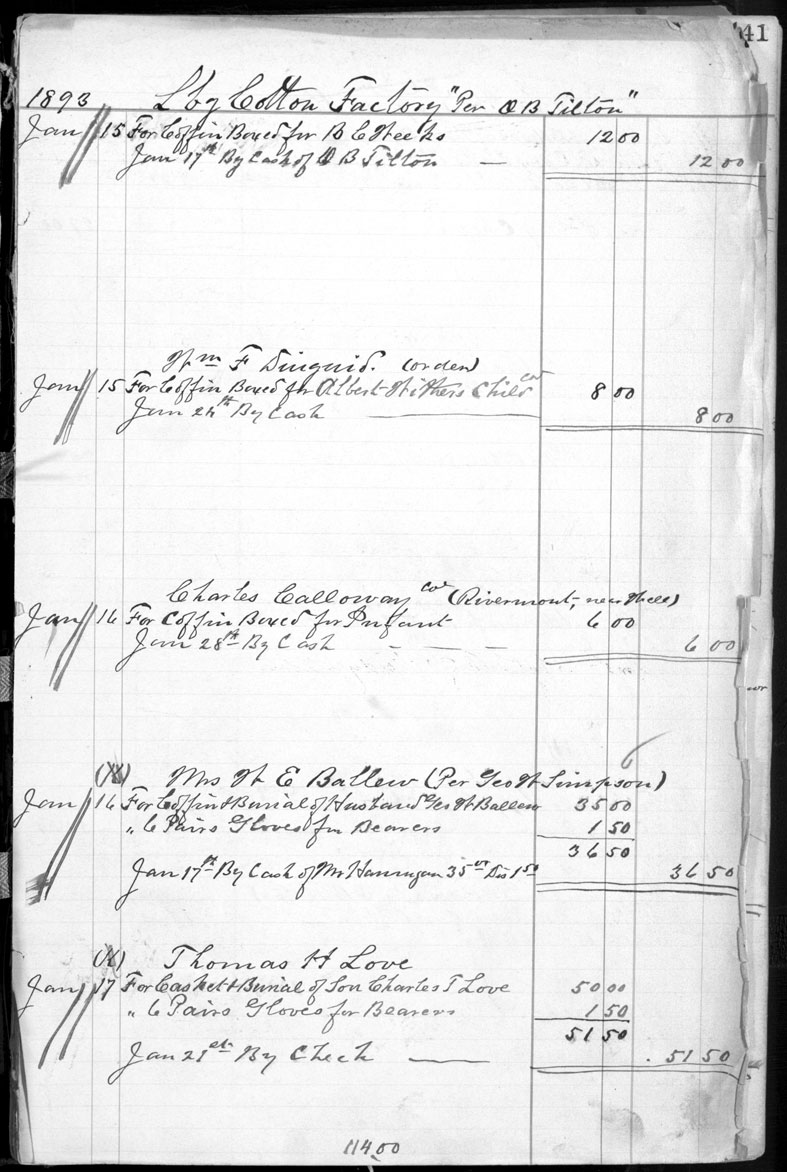 41
1893 Lbg Cotton Factory "Per O B Tilton"
Jan 15 For Coffin Boxed for B C Weeks 12 00
Jan 17th By Cash of O B Tilton — 12 00
Wm F Diuguid. (order)
Jan 15 For Coffin Boxed for Albert Withers Child col 8 00
Jan 24th By Cash — 8 00
Charles Calloway col (Rivermont, near Hill)
Jan 16 For Coffin Boxed for Infant 6 00
Jan 28th By Cash — — — 6 00
Mrs W E Ballew (Per Geo W Simpson)
Jan 16 For Coffin & Burial of Husband Geo W Ballew 35 00
" 6 Pairs Gloves for Bearers 1 50
36 50
Jan 17th By Cash of Mr Hannigan 35 00 Dis 1 50 36 50
Thomas H Love
Jan 17 For Casket & Burial of Son Charles T Love 50 00
" 6 Pairs Gloves for Bearers 1 50
51 50
Jan 21st By Check — 51 50
114.00